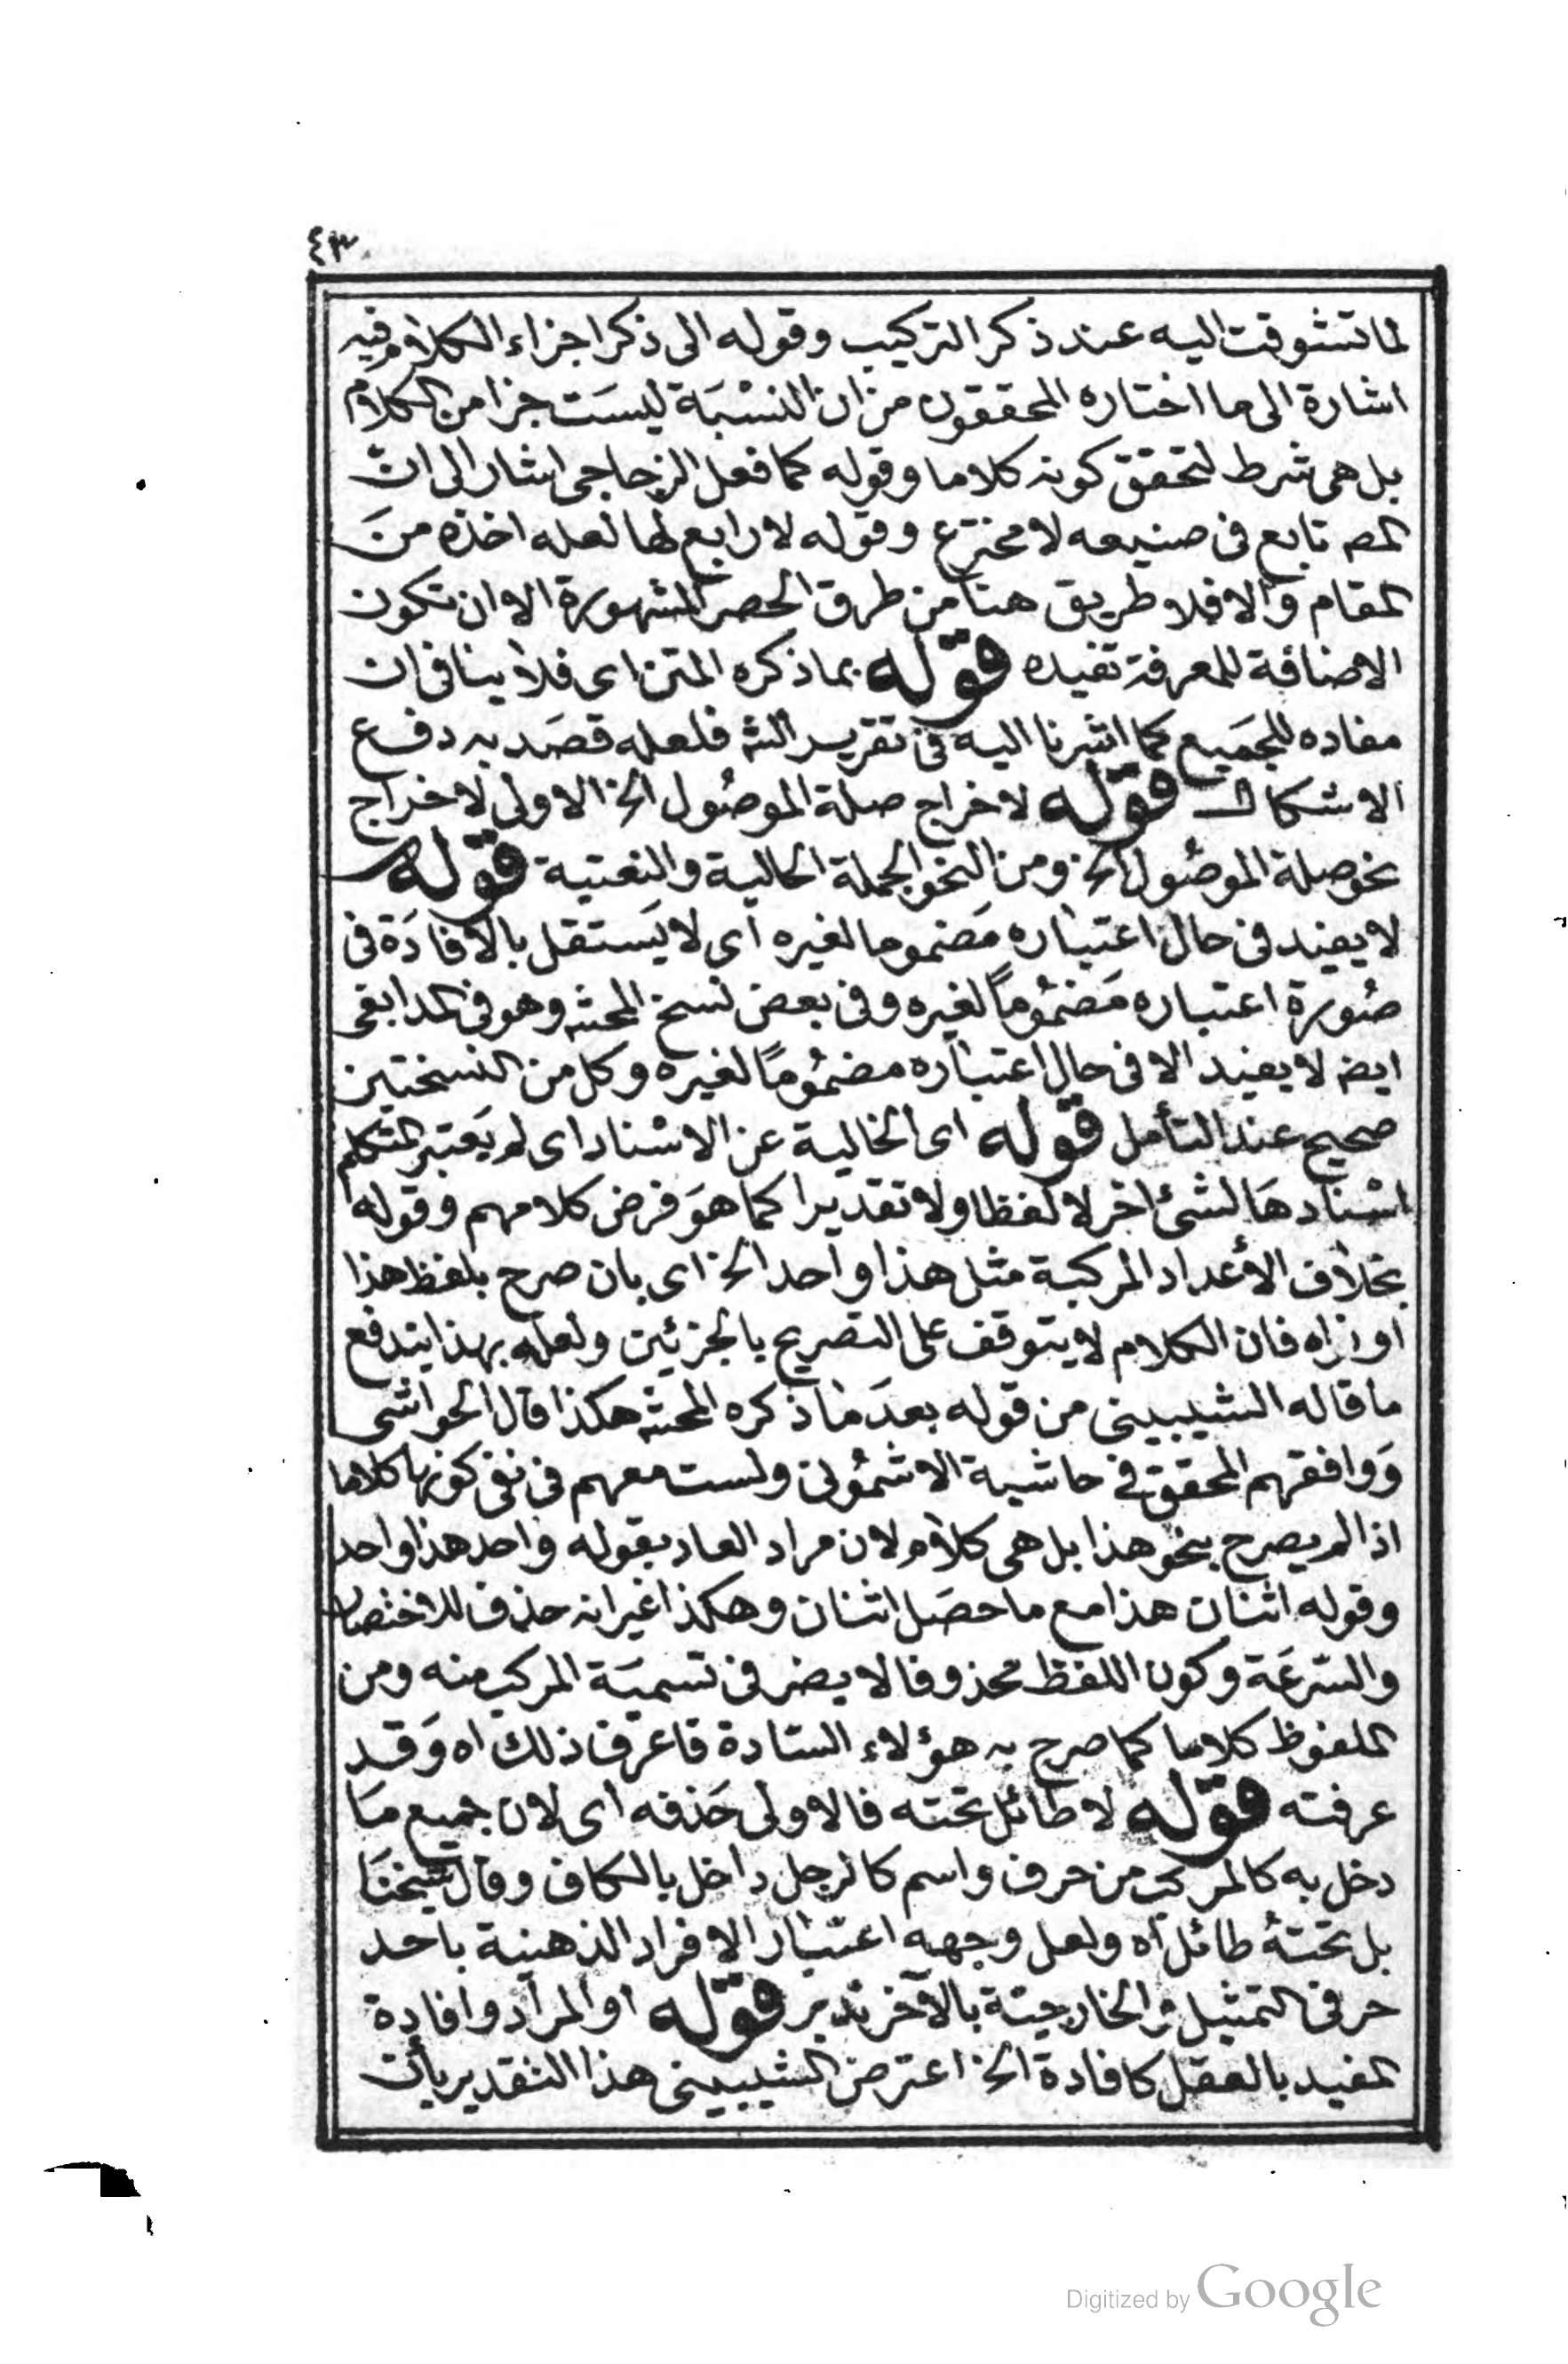 ٤٣
لما تشوقت اليه عند ذكر التركيب وقوله الى ذكر اجزاء الكلام فيه
اشارة الى ما اختاره المحققون من ان النسْبَة ليسَت جزا من الكلام
بل هى شرط لتحقق كونه كلاما وقوله كما فعل الزجاجى اشار الى انّ
المص تابع فى صنيعه لا مخترع وقوله لا رابع لها لعله اخذه منَ
المقام والا فلا طريق هنا من طرق الحصر المشهورة الا ان تكون
الاضافة للمعرفة تفيده قوّله بما ذكره المتن اى فلا ينافى ان
مفاده للجمَيع كما اشرنا اليه فى تقرير الش فلعله قصَد به دفع
الاشكال قوّله لاخراج صلة الموصُول الخ الاولى لاخراج
نحو صلة الموصُول الخ ومن النحو الجملة الحالية والنعتية قوّله
لا يفيد فى حال اعتباره مَضموما لغيره اى لا يَستقل بالافادَة فى
صُورة اعتباره مَضمُوماً لغيره وفى بعض نسخ المحشى وهو فى المدابغى
ايض لا يفيد الا فى حال اعتباره مضمُومًا لغيره وكل من النسختين
صحيح عند التأمل قوّله اى الخالية عن الاسْناد اى لم يَعتبر المتكلم
اسْنادهَا لشئ اخر لا لفظا ولا تقديرا كما هوَ فرض كلامهم وقوله
بخلاف الأعداد المركبة مثل هذا واحد الخ اى بان صرح بلفظ هذا
او نواه فان الكلام لا يتوقف على التصريح بالجزئين ولعله بهذا يندفع
ما قاله الشيبينى من قوله بعدَ ما ذكره المحشى هكذا قال الحواشى
وَوافقهم المحقق فى حاشية الاشمُونى ولست معهم فى نفى كونها كلاما
اذا لم يصرح بنحو هذا بل هى كلام لان مراد العاد بقوله واحد هذا واحد
وقوله اثنان هذا مع ما حصَل اثنان وهكذا غير انه حذف للاختصار
والسّرعَة وكون اللفظ محذوفا لا يضر فى تسميَة المركب منه ومن
الملفوظ كلاما كما صرح به هؤلاء السّادة فاعرف ذلك اه وَقد
عرفته قوّله لا طائل تحته فالاولى حَذفه اى لان جميع مَا
دخل به كالمركب من حرف واسم كالرجل داخل بالكاف وقال شيخنَا
بل تحتهُ طائل اه ولعل وجهه اعتبار الافراد الذهنية باحد
حرفى التمثيل والخارجيّة بالآخر تدبر قوّله او المراد وافادة
المفيد بالعقل كافادة الخ اعترض الشيبينى هذا التقدير بأن
Digitized by Google